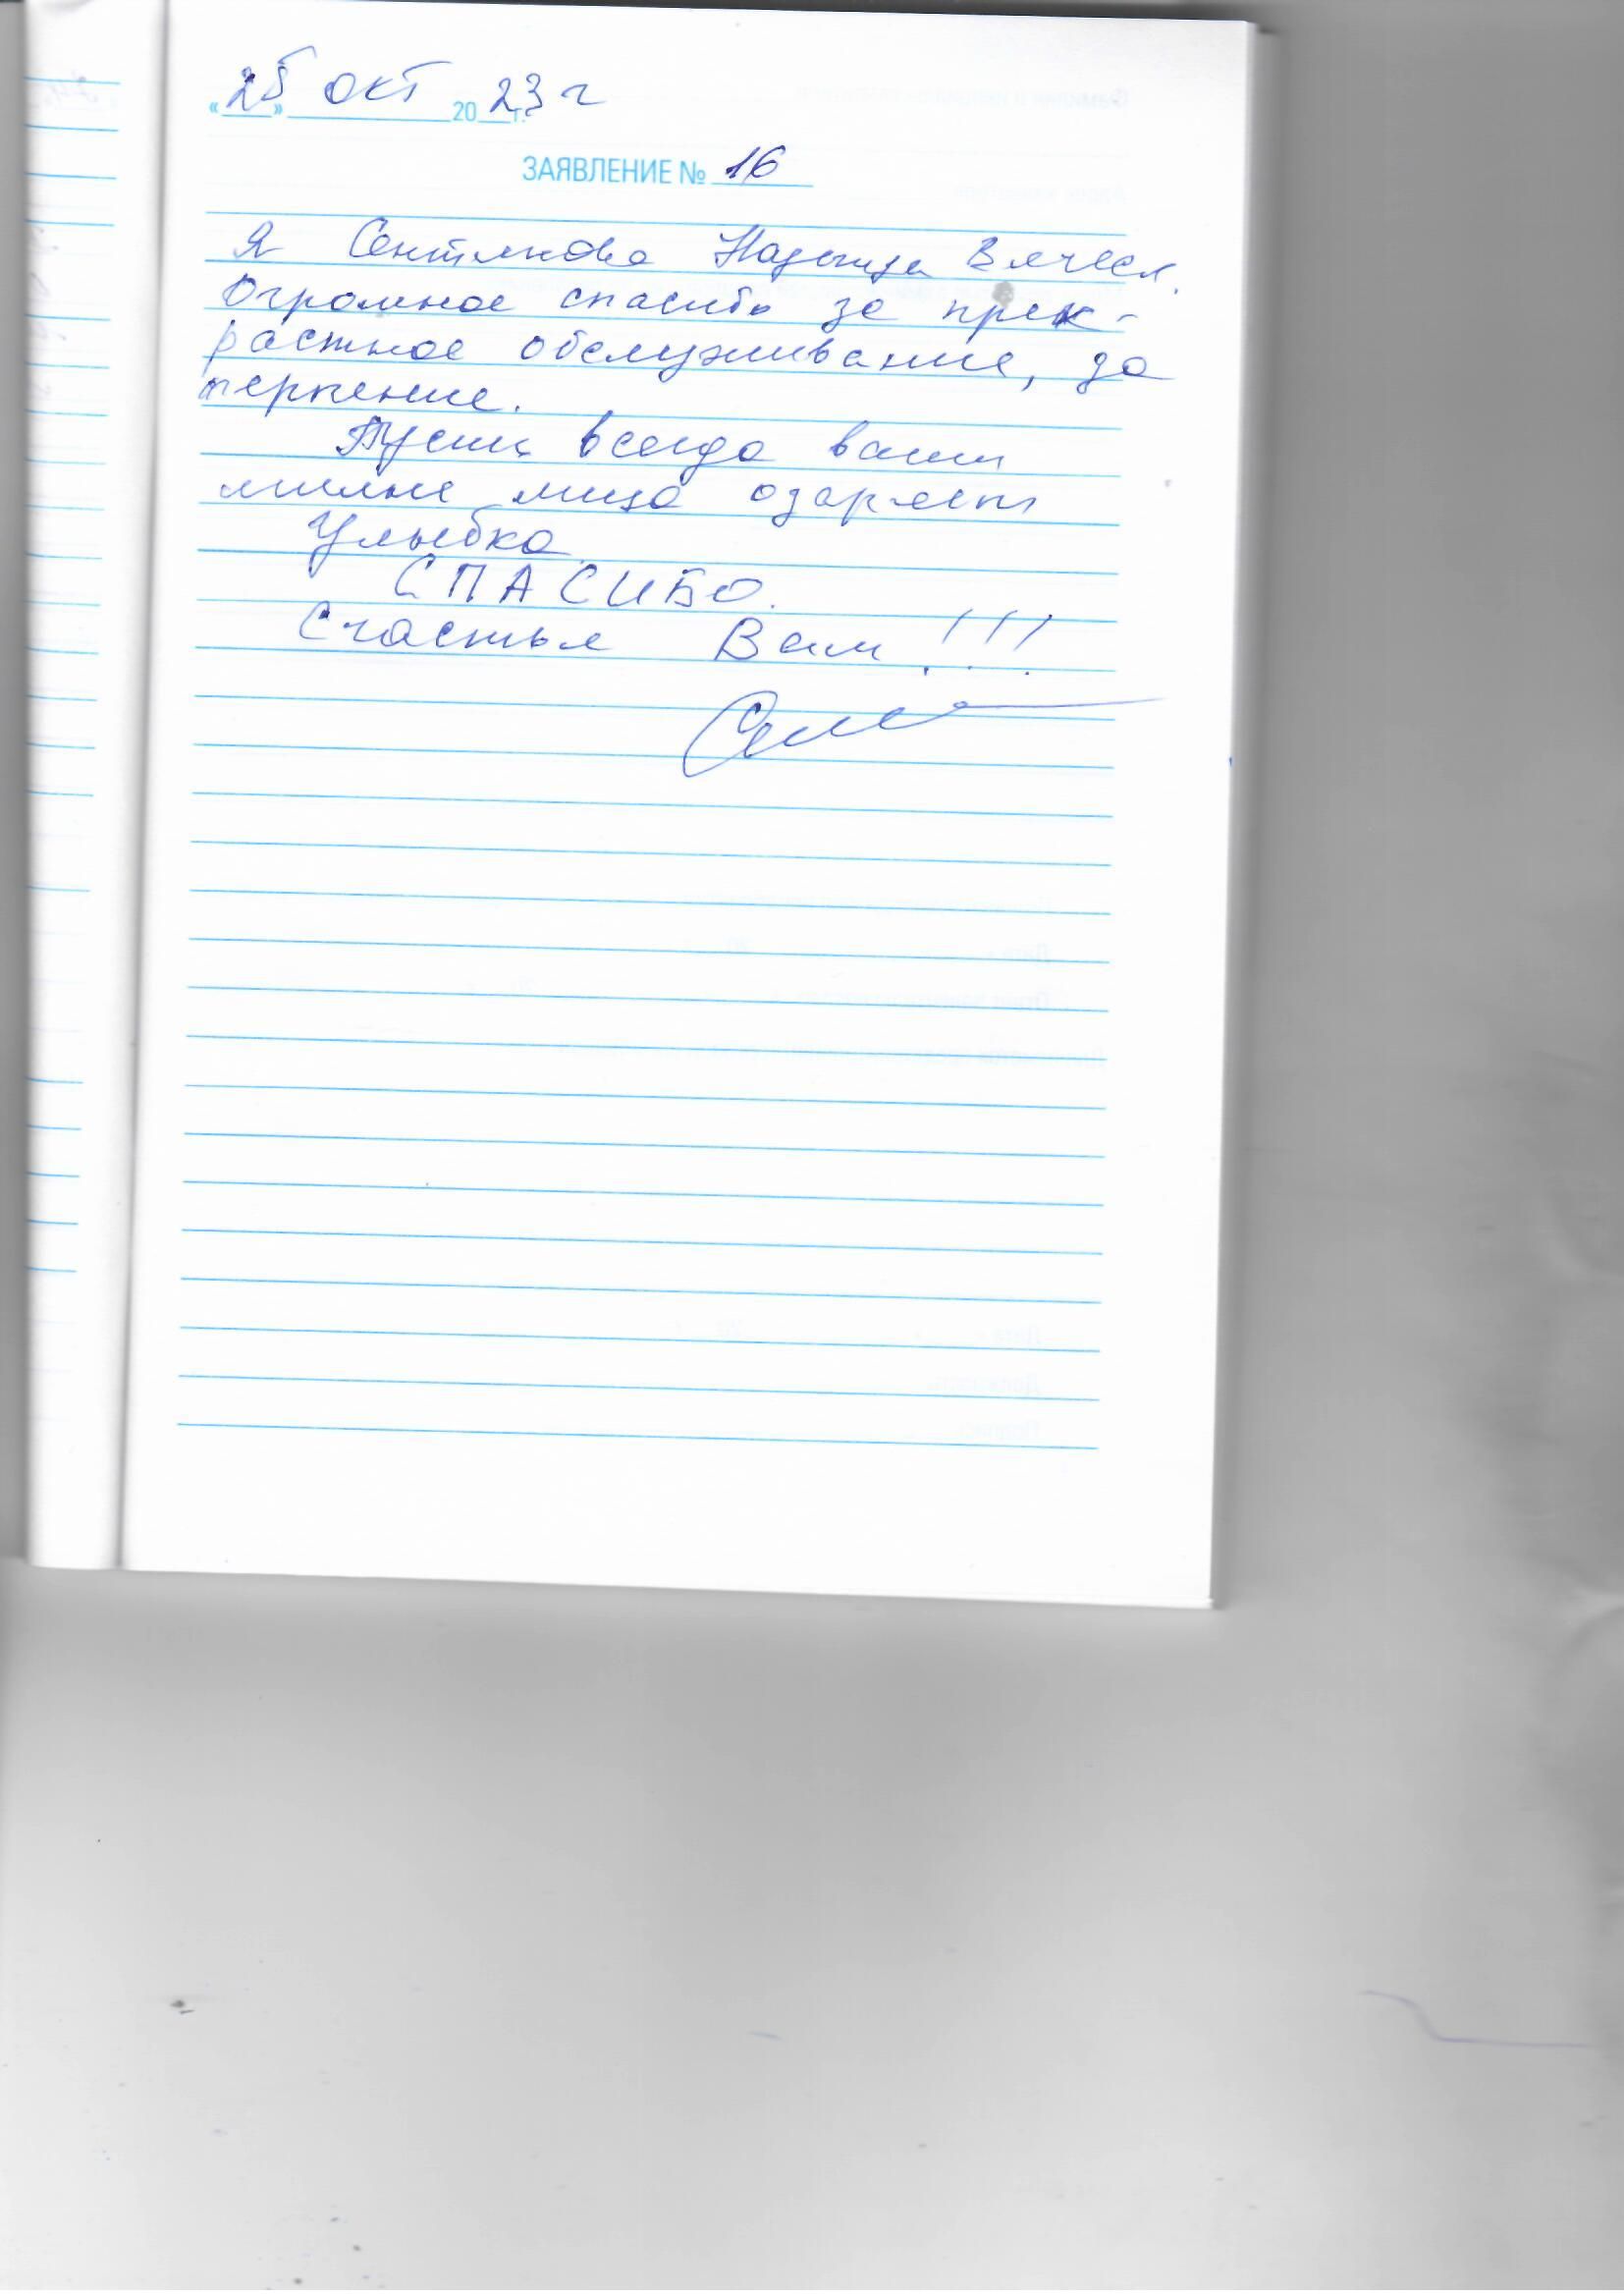 «25» окт 2023 г
ЗАЯВЛЕНИЕ № 16
Я Сентякова Надежда Вячесл.
Огромное спасибо за прек-
растное обслуживание, за
терпение.
Пусть всегда ваши
милые лица озаряет
Улыбка
СПАСИБО.
Счастья Вам!!!